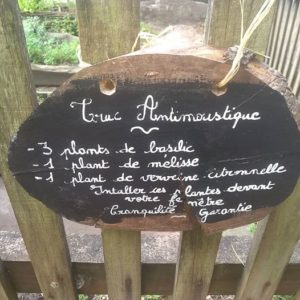 Truc Antimoustique
- 3 plants de basilic
- 1 plant de mélisse
- 1 plant de verveine citronnelle
Intaller ces plantes devant
votre fenêtre
Tranquilité Garantie